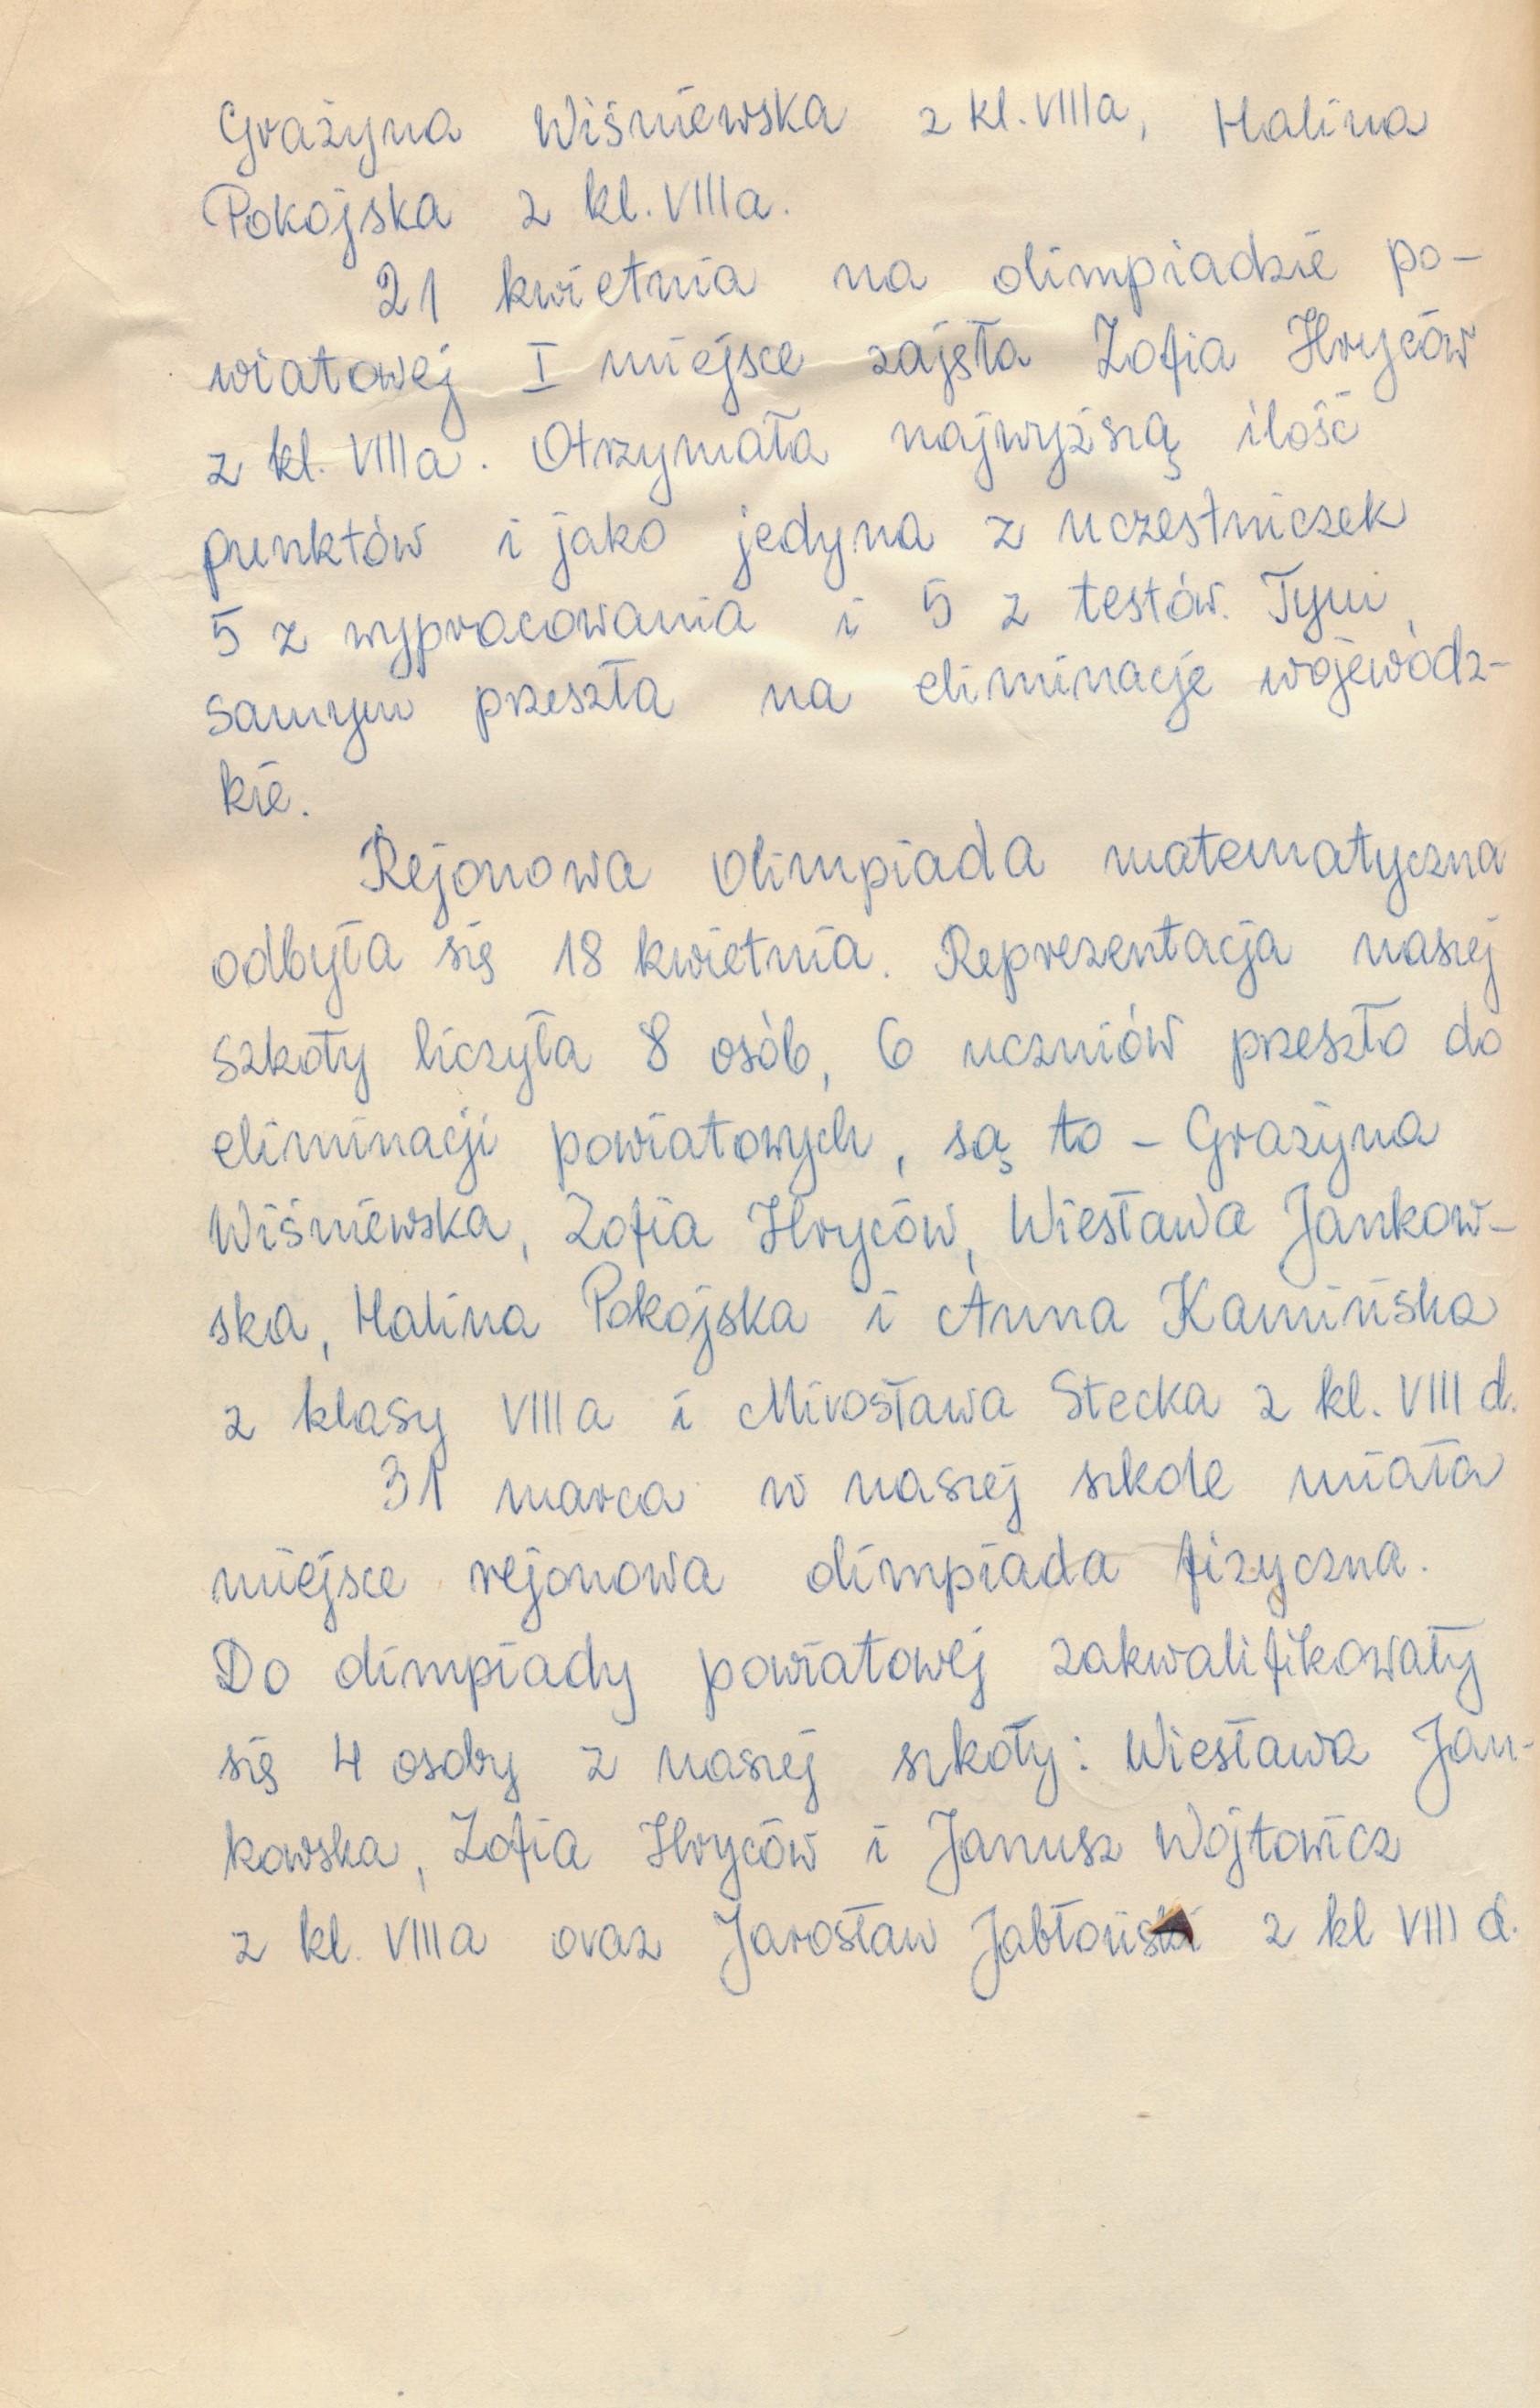 Grażyna Wiśniewska z kl. VIIIa, Halina
Pokojska z kl. VIIIa.
21 kwietnia na olimpiadzie po-
wiatowej I miejsce zajęła Zofia Hryców
z kl. VIIIa. Otrzymała najwyższą ilość
punktów i jako jedyna z uczestniczek
5 z wypracowania i 5 z testów. Tym
samym przeszła na eliminacje wojewódz-
kie.
Rejonowa olimpiada matematyczna
odbyła się 18 kwietnia. Reprezentacja naszej
szkoły liczyła 8 osób, 6 uczniów przeszło do
eliminacji powiatowych, są to – Grażyna
Wiśniewska, Zofia Hryców, Wiesława Jankow-
ska, Halina Pokojska i Anna Kamińska
z klasy VIIIa i Mirosława Stecka z kl. VIII d.
31 marca w naszej szkole miała
miejsce rejonowa olimpiada fizyczna.
Do olimpiady powiatowej zakwalifikowały
się 4 osoby z naszej szkoły: Wiesława Jan-
kowska, Zofia Hryców i Janusz Wójtowicz
z kl. VIIIa oraz Jarosław Jabłoński z kl VIII d.